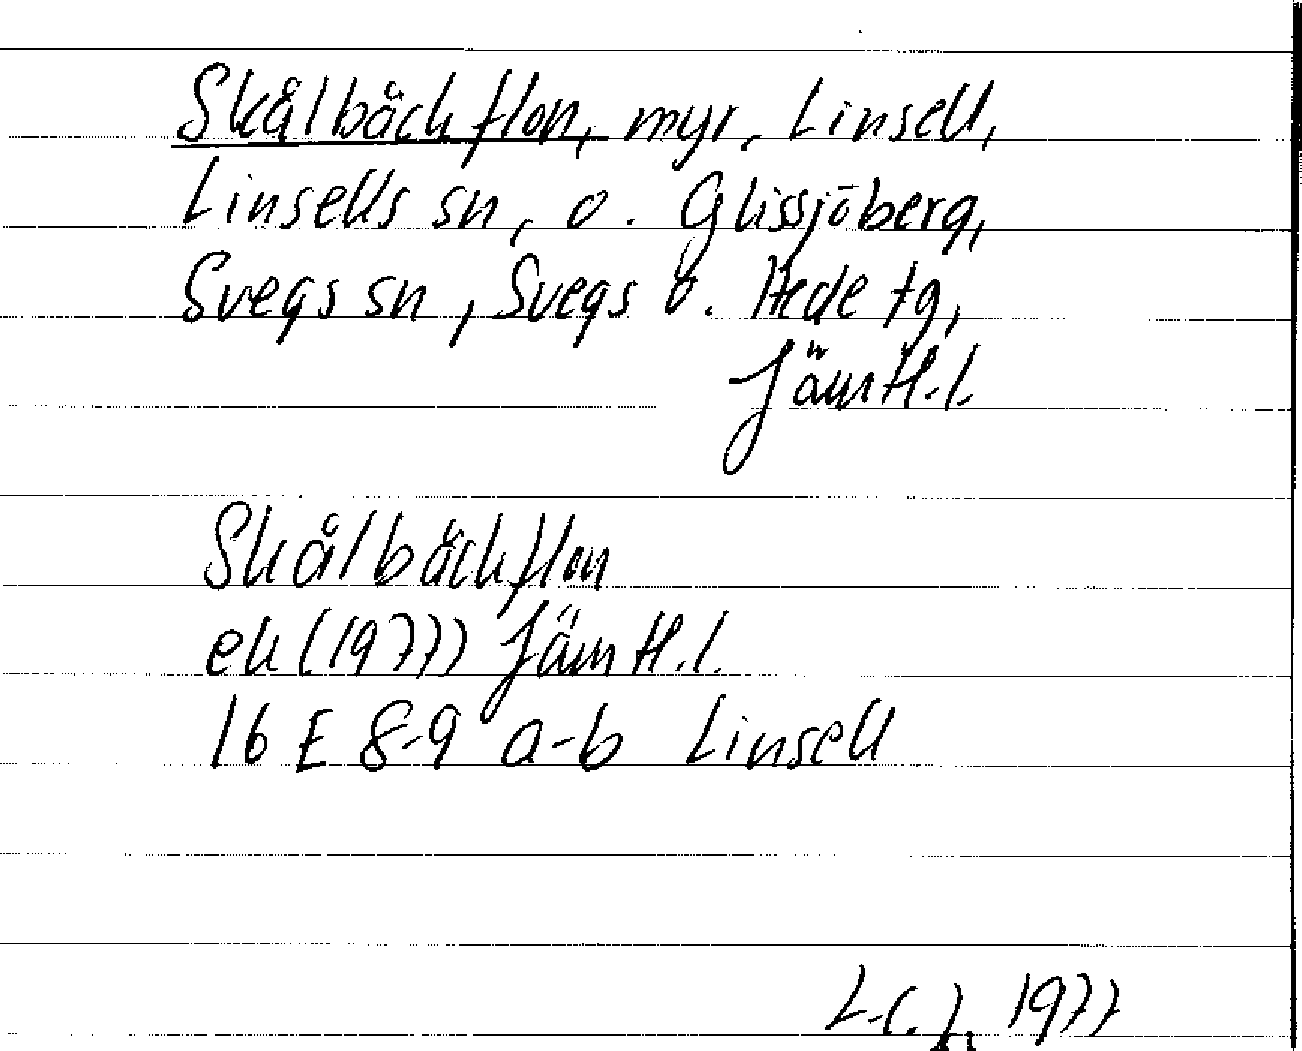 Skålbäckflon, myr, Linsell,
Linsells sn, o. Glissjöberg,
Svegs sn, Svegs o. Hede tg,
Jämtl.l.
Skålbäckflon
ek (1977) Jämtl.l.
16 E 8-9 a-b Linsell
1977